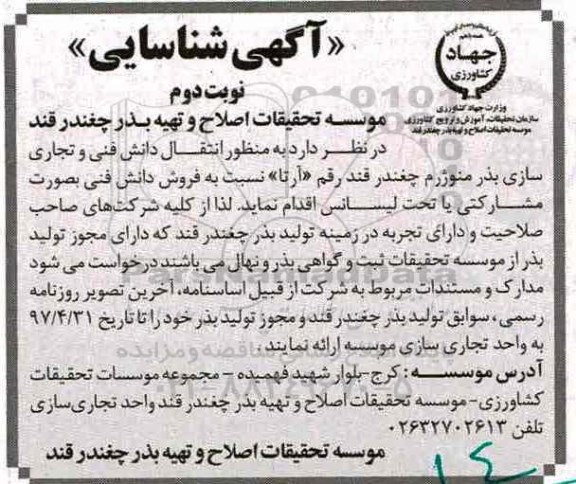 «آگهی شناسایی»
نوبت دوم
جهاد
کشاورزی
وزارت جهاد کشاورزی
سازمان تحقیقات، آموزش و ترویج کشاورزی
موسسه تحقیقات اصلاح و تهیه بذر چغندر قند
موسسه تحقیقات اصلاح و تهیه بذر چغندر قند
در نظر دارد به منظور انتقال دانش فنی و تجاری
سازی بذر منوژرم چغندر قند رقم «آرتا» نسبت به فروش دانش فنی بصورت
مشارکتی یا تحت لیسانس اقدام نماید. لذا از کلیه شرکت‌های صاحب
صلاحیت و دارای تجربه در زمینه تولید بذر چغندر قند که دارای مجوز تولید
بذر از موسسه تحقیقات ثبت و گواهی بذر و نهال می باشند درخواست می شود
مدارک و مستندات مربوط به شرکت از قبیل اساسنامه، آخرین تصویر روزنامه
رسمی، سوابق تولید بذر چغندر قند و مجوز تولید بذر خود را تا تاریخ ۹۷/۴/۳۱
به واحد تجاری سازی موسسه ارائه نمایند.
آدرس موسسه: کرج-بلوار شهید فهمیده – مجموعه موسسات تحقیقات
کشاورزی- موسسه تحقیقات اصلاح و تهیه بذر چغندر قند واحد تجاری‌سازی
تلفن ۰۲۶۳۲۷۰۲۶۱۳
موسسه تحقیقات اصلاح و تهیه بذر چغندر قند
۱۴